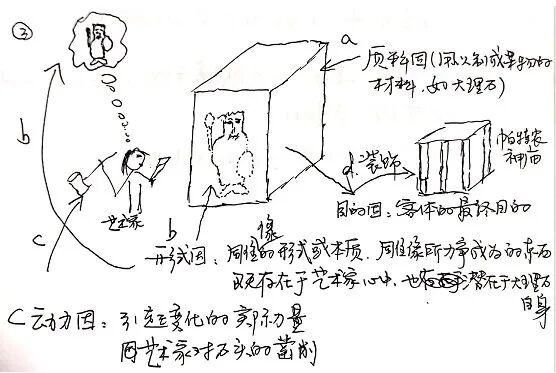 ③
a
质料因(用以制成某物的
材料,如大理石)
b
d.装饰
帕特农
神庙
目的因:客体的最终目的
艺术家
c
b
像
形式因:周雕的形式或本质,周雕像所力争成为的东西
既存在于艺术家心中,也潜在于大理石
自身
C动力因:引起变化的实际力量
因艺术家对石头的凿削